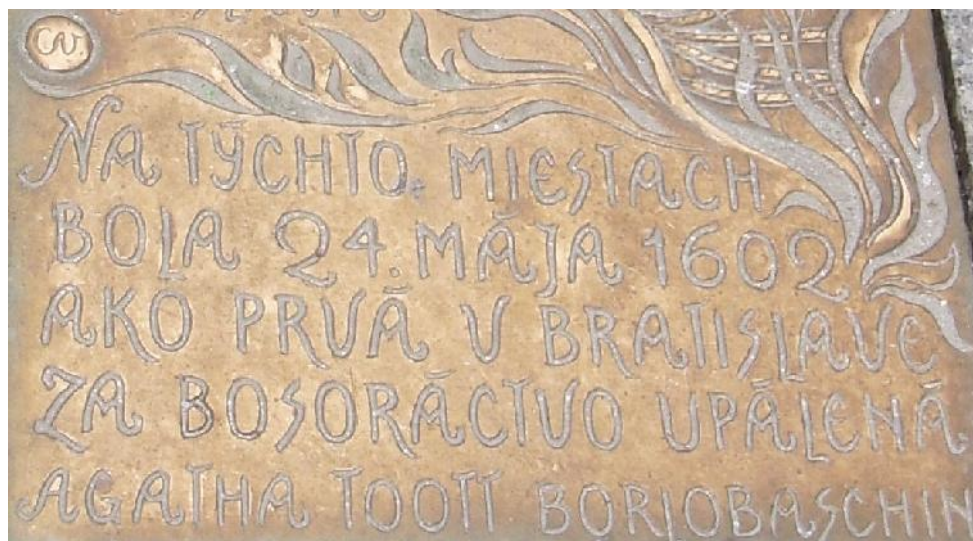 NA TÝCHTO MIESTACH
BOLA 24. MÁJA 1602
AKO PRVÁ V BRATISLAVE
ZA BOSORÁCTVO UPÁLENÁ
AGATHA TOOTT BORLOBASCHIN